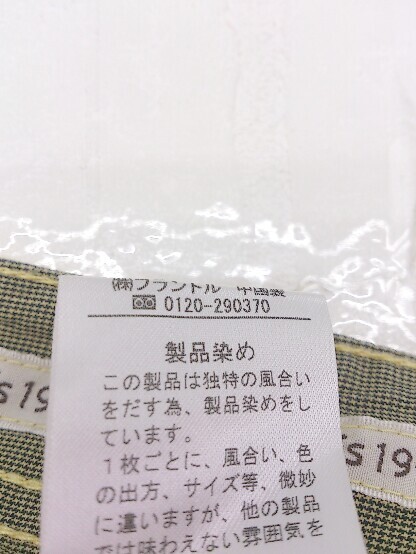 ㈱フランドル 中国製
0120-290370
製品染め
この製品は独特の風合い
をだす為、製品染めをし
ています。
1枚ごとに、風合い、色
の出方、サイズ等、微妙
に違いますが、他の製品
では味わえない雰囲気を
s 19
s 19